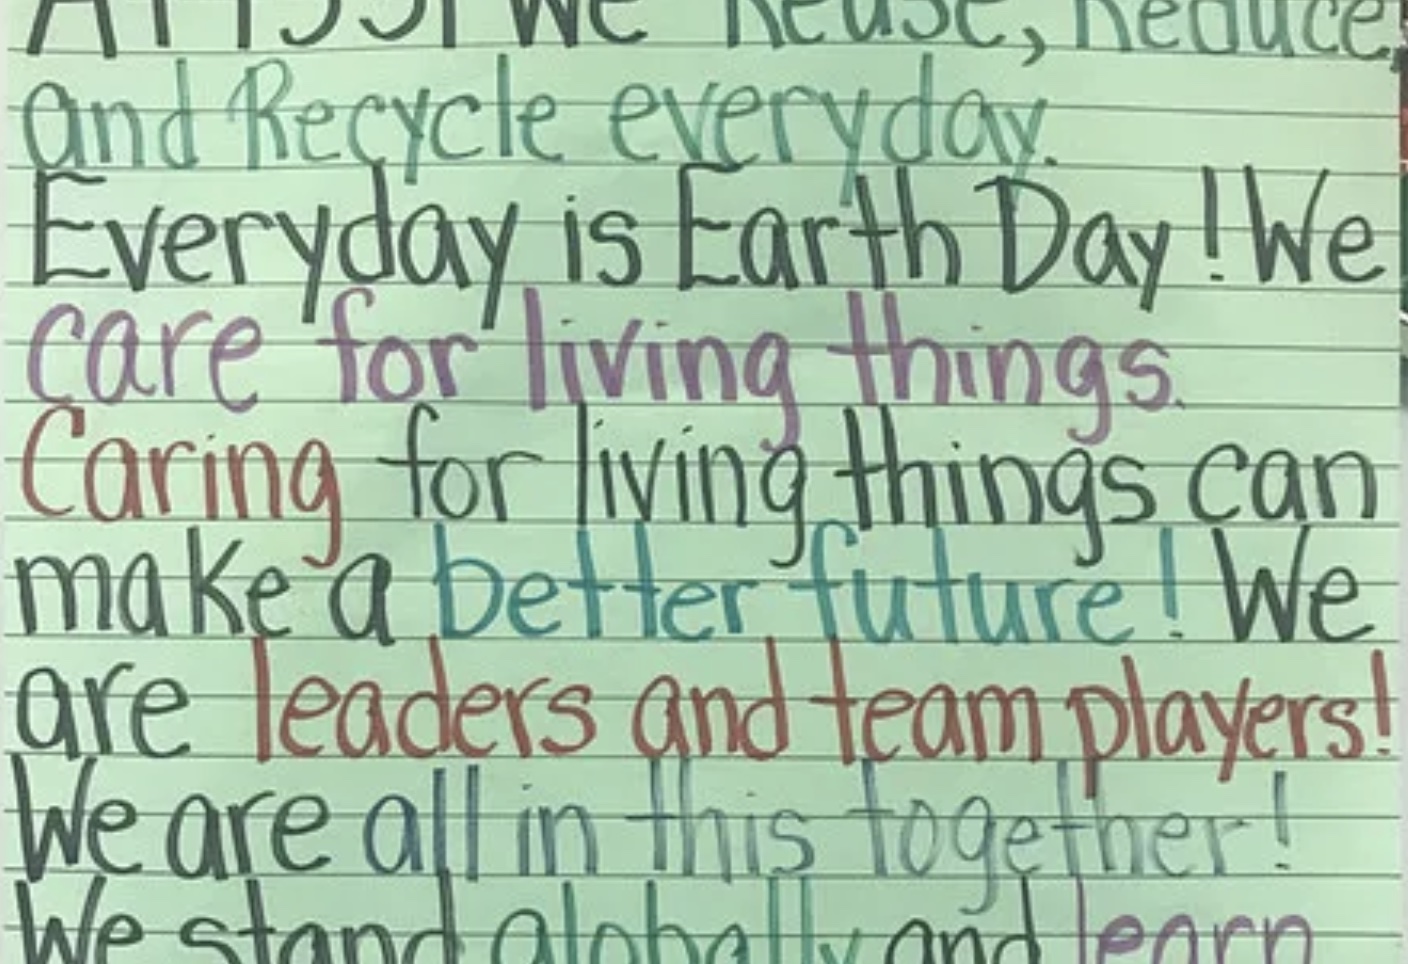 At PS51 We Reuse, Reduce,
and Recycle everyday.
Everyday is Earth Day! We
care for living things.
Caring for living things can
make a better future! We
are leaders and team players!
We are all in this together!
We stand globally and learn